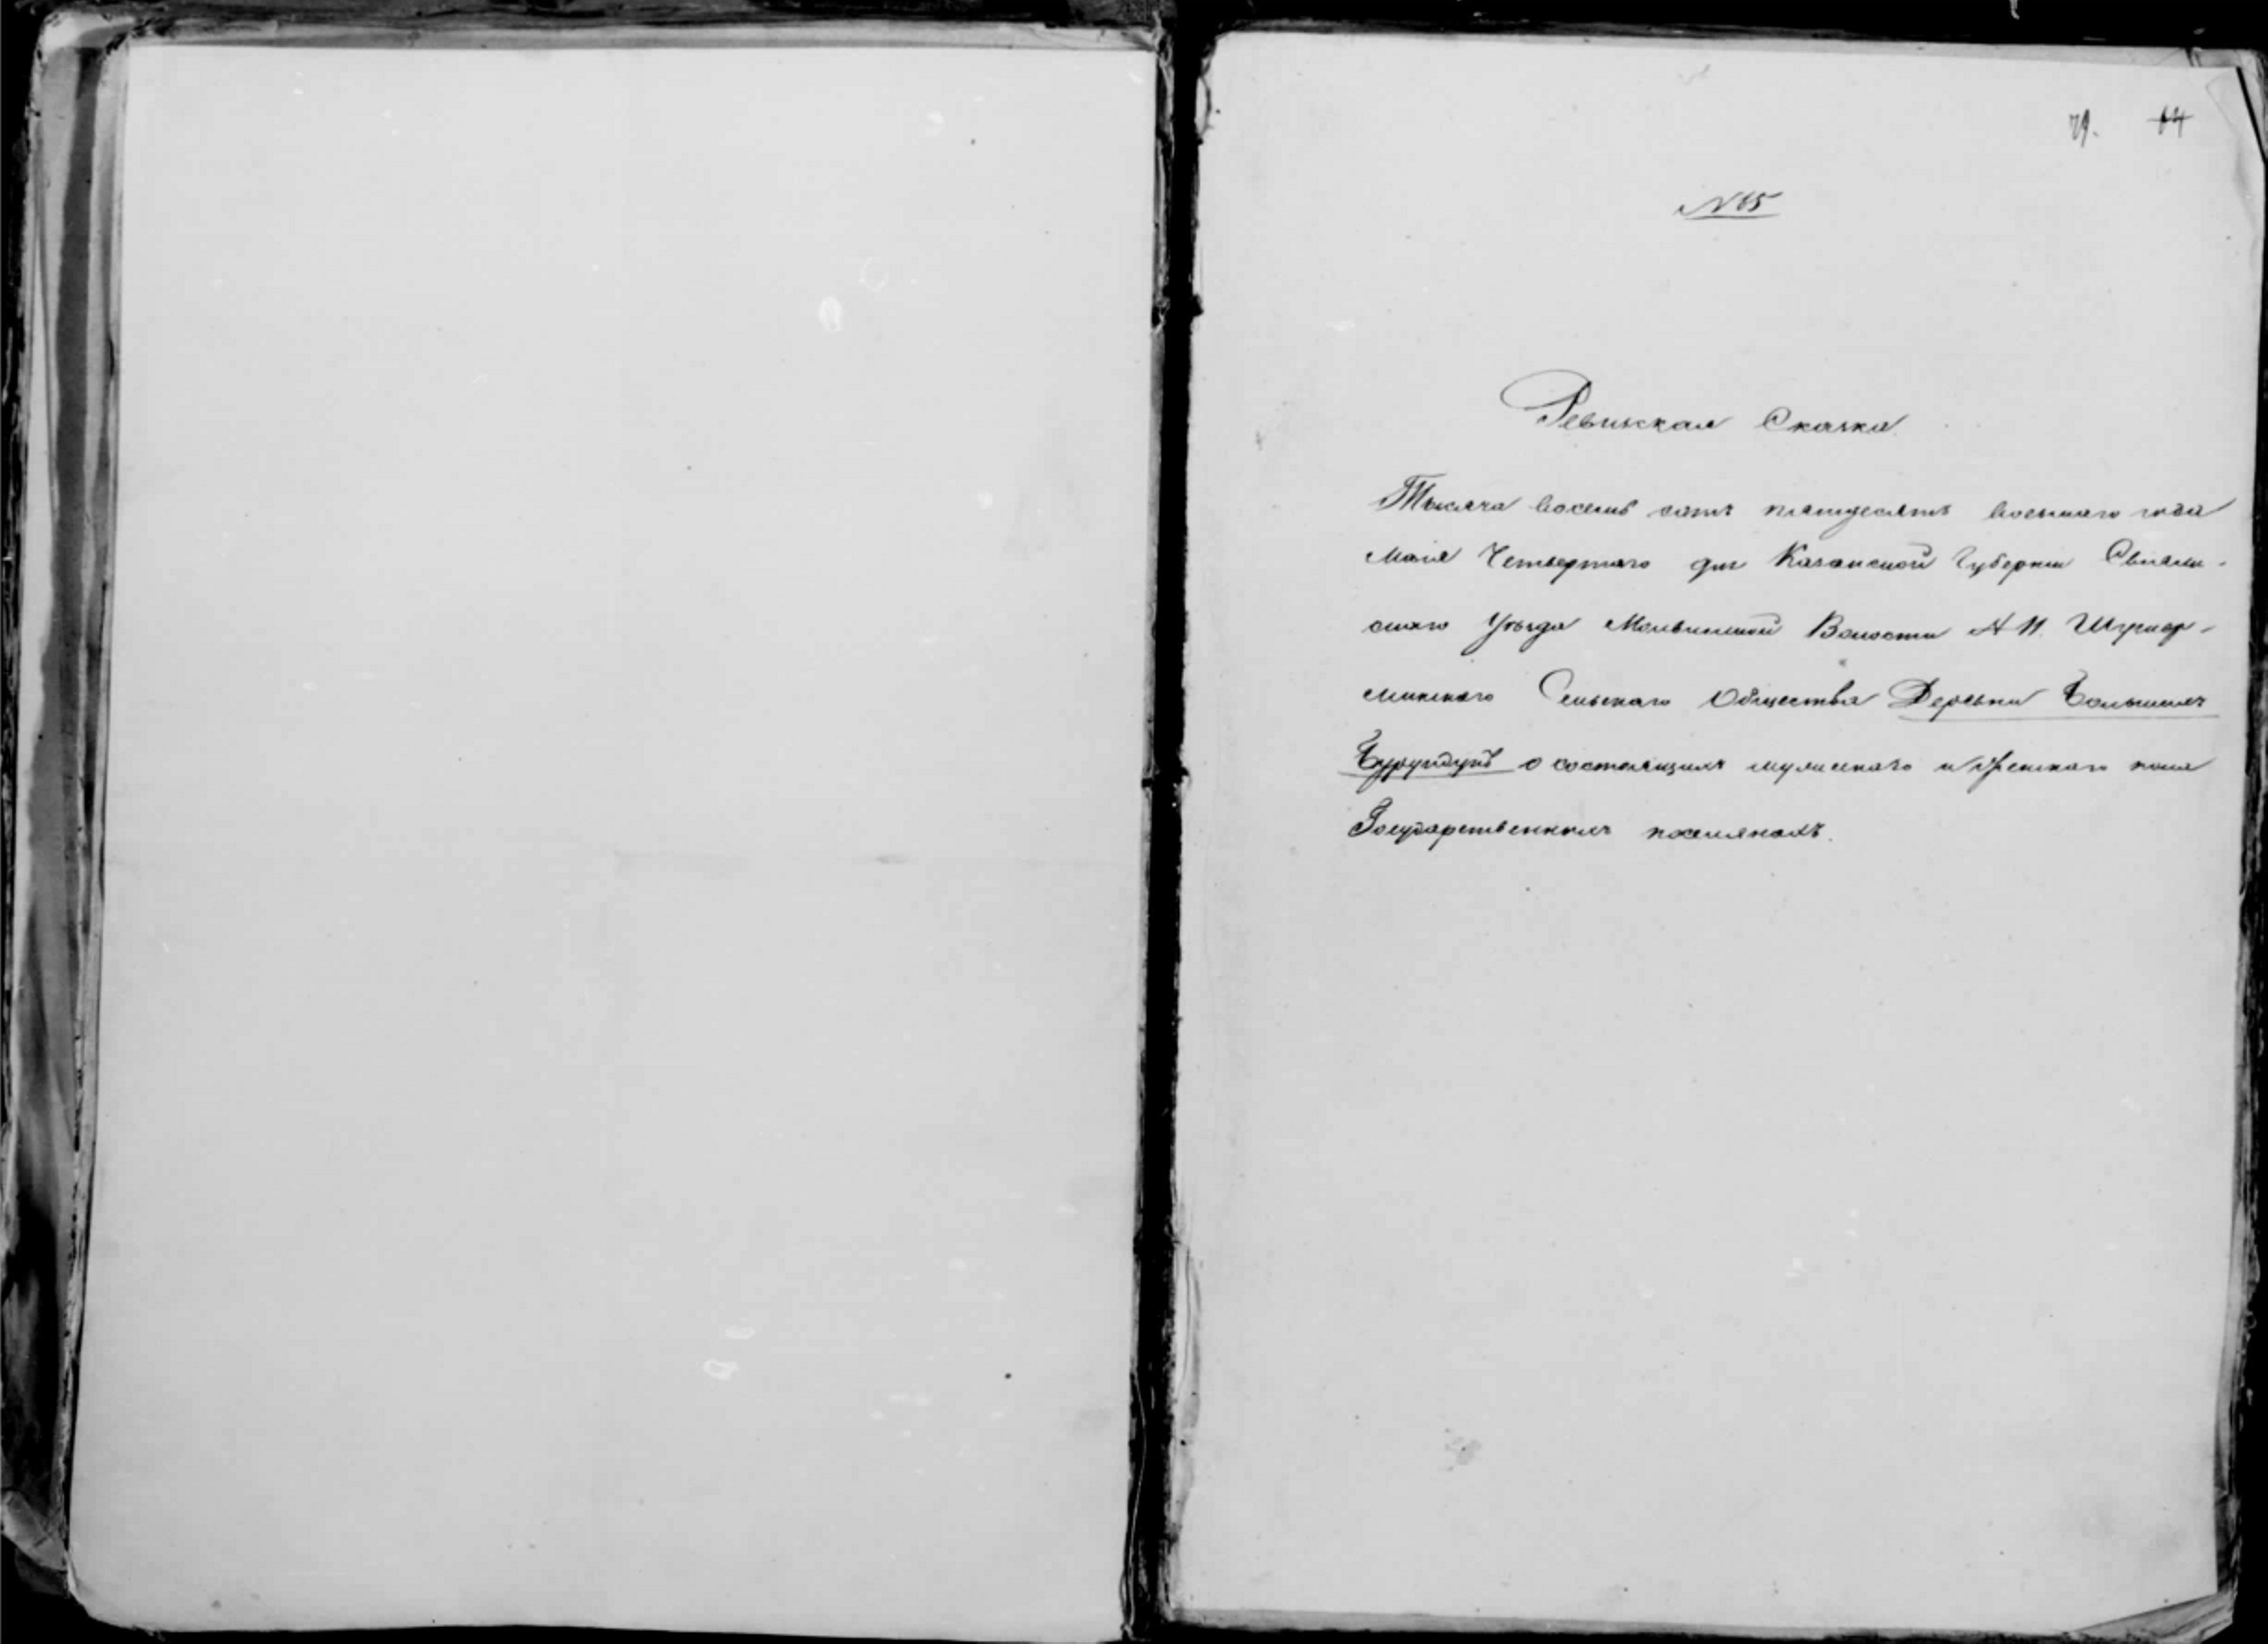 79. 64
№ 65
Ревижская Сказка
Тысяча восемь сотъ пятьдесятъ восьмаго года
Маія Четвертаго дня Казанской Губерніи Свіяж-
скаго Уѣзда Молвинской Волости
Сельскаго Общества Деревни Большихъ
Бурундукъ о состоящихъ мужескаго и женскаго пола
Государственныхъ поселянахъ.